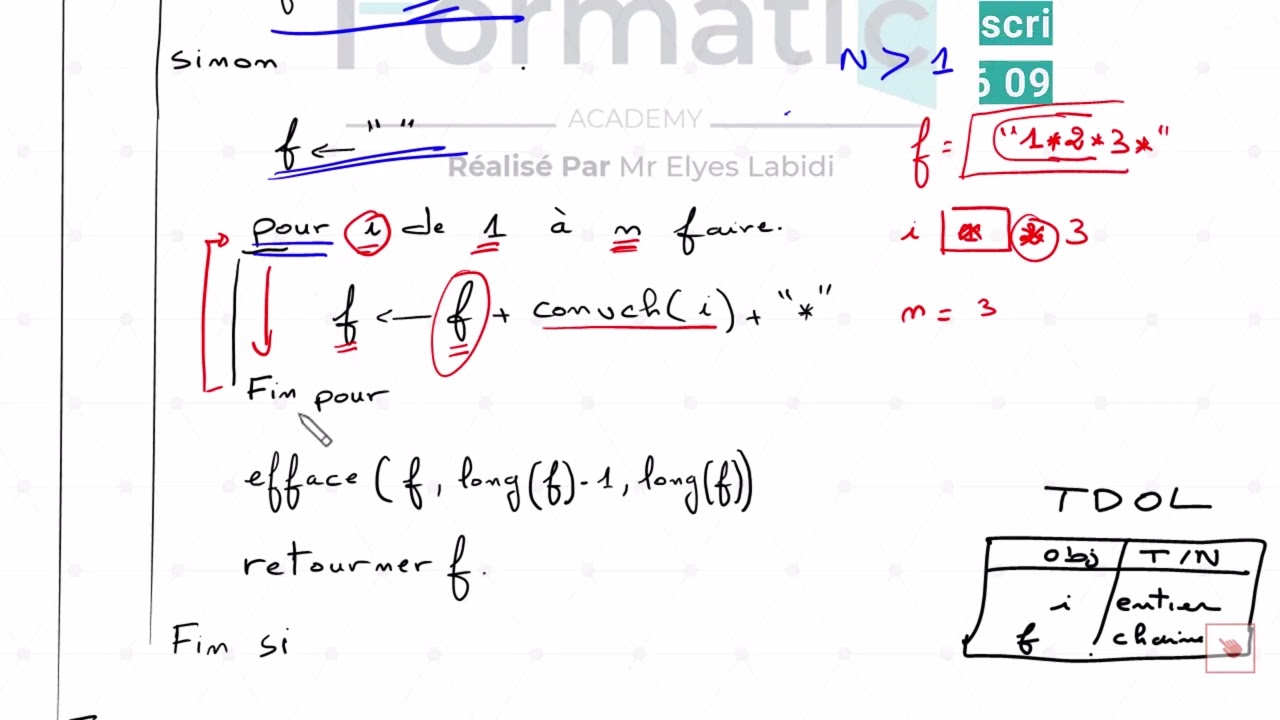 Formatic
scri
sinon
N > 1
6 09
ACADEMY
f ← " "
f = "1*2*3*"
Réalisé Par Mr Elyes Labidi
pour i de 1 à n faire.
i 3
f ← f + convch(i) + "*"
n = 3
Fin pour
efface (f, long(f)-1, long(f))
TDOL
obj T/N
retourner f.
i entier
f chaine
Fin si